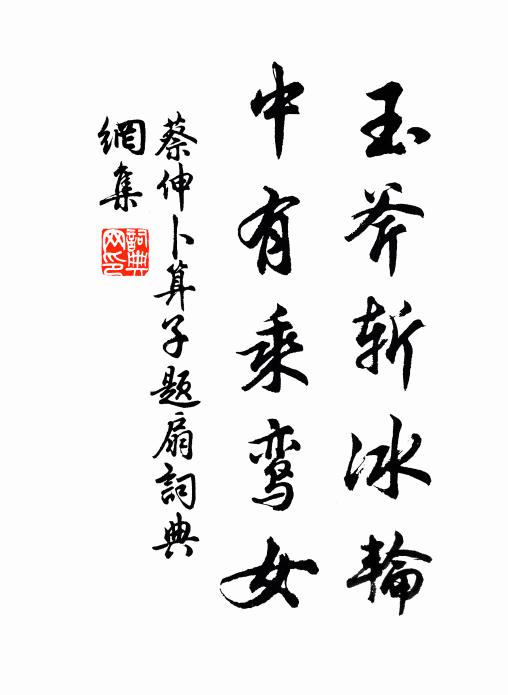 玉斧斩冰輪
中有乘鸾女
蔡伸卜算子题扇詞典
網集
詞典
网印